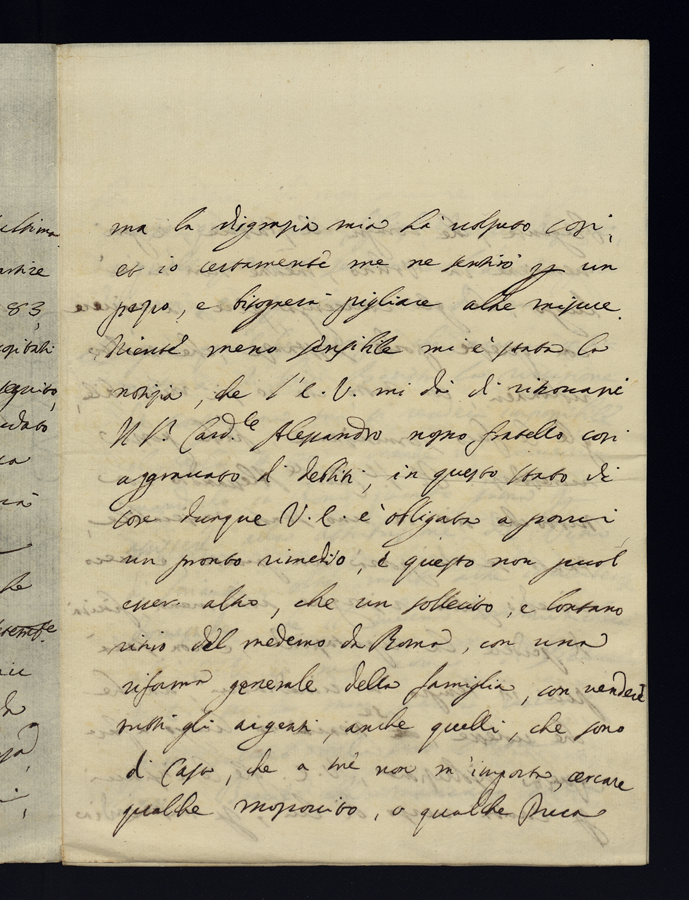 ma la disgrazia mia hà voluto così,
et io certamente me ne sentirò p un
pezzo, e bisognerà pigliare altre misure.
Niente meno sensibile mi è stata la
notizia, che l'E. V. mi dà di ritrovarsi
il S.r Card.le Alessandro nostro fratello così
aggravato di debiti, in questo stato di
cose dunque V. E. è obligata a porvi
un pronto rimedio, e questo non puol
esser altro, che un sollecito, e lontano
ritiro del medemo da Roma, con una
riforma generale della famiglia, con vendere
tutti gli argenti, anche quelli, che sono
di Casa, che a mè non m'importa, cercare
qualche monsolito, o qualche
ultima
83
seguito,
che